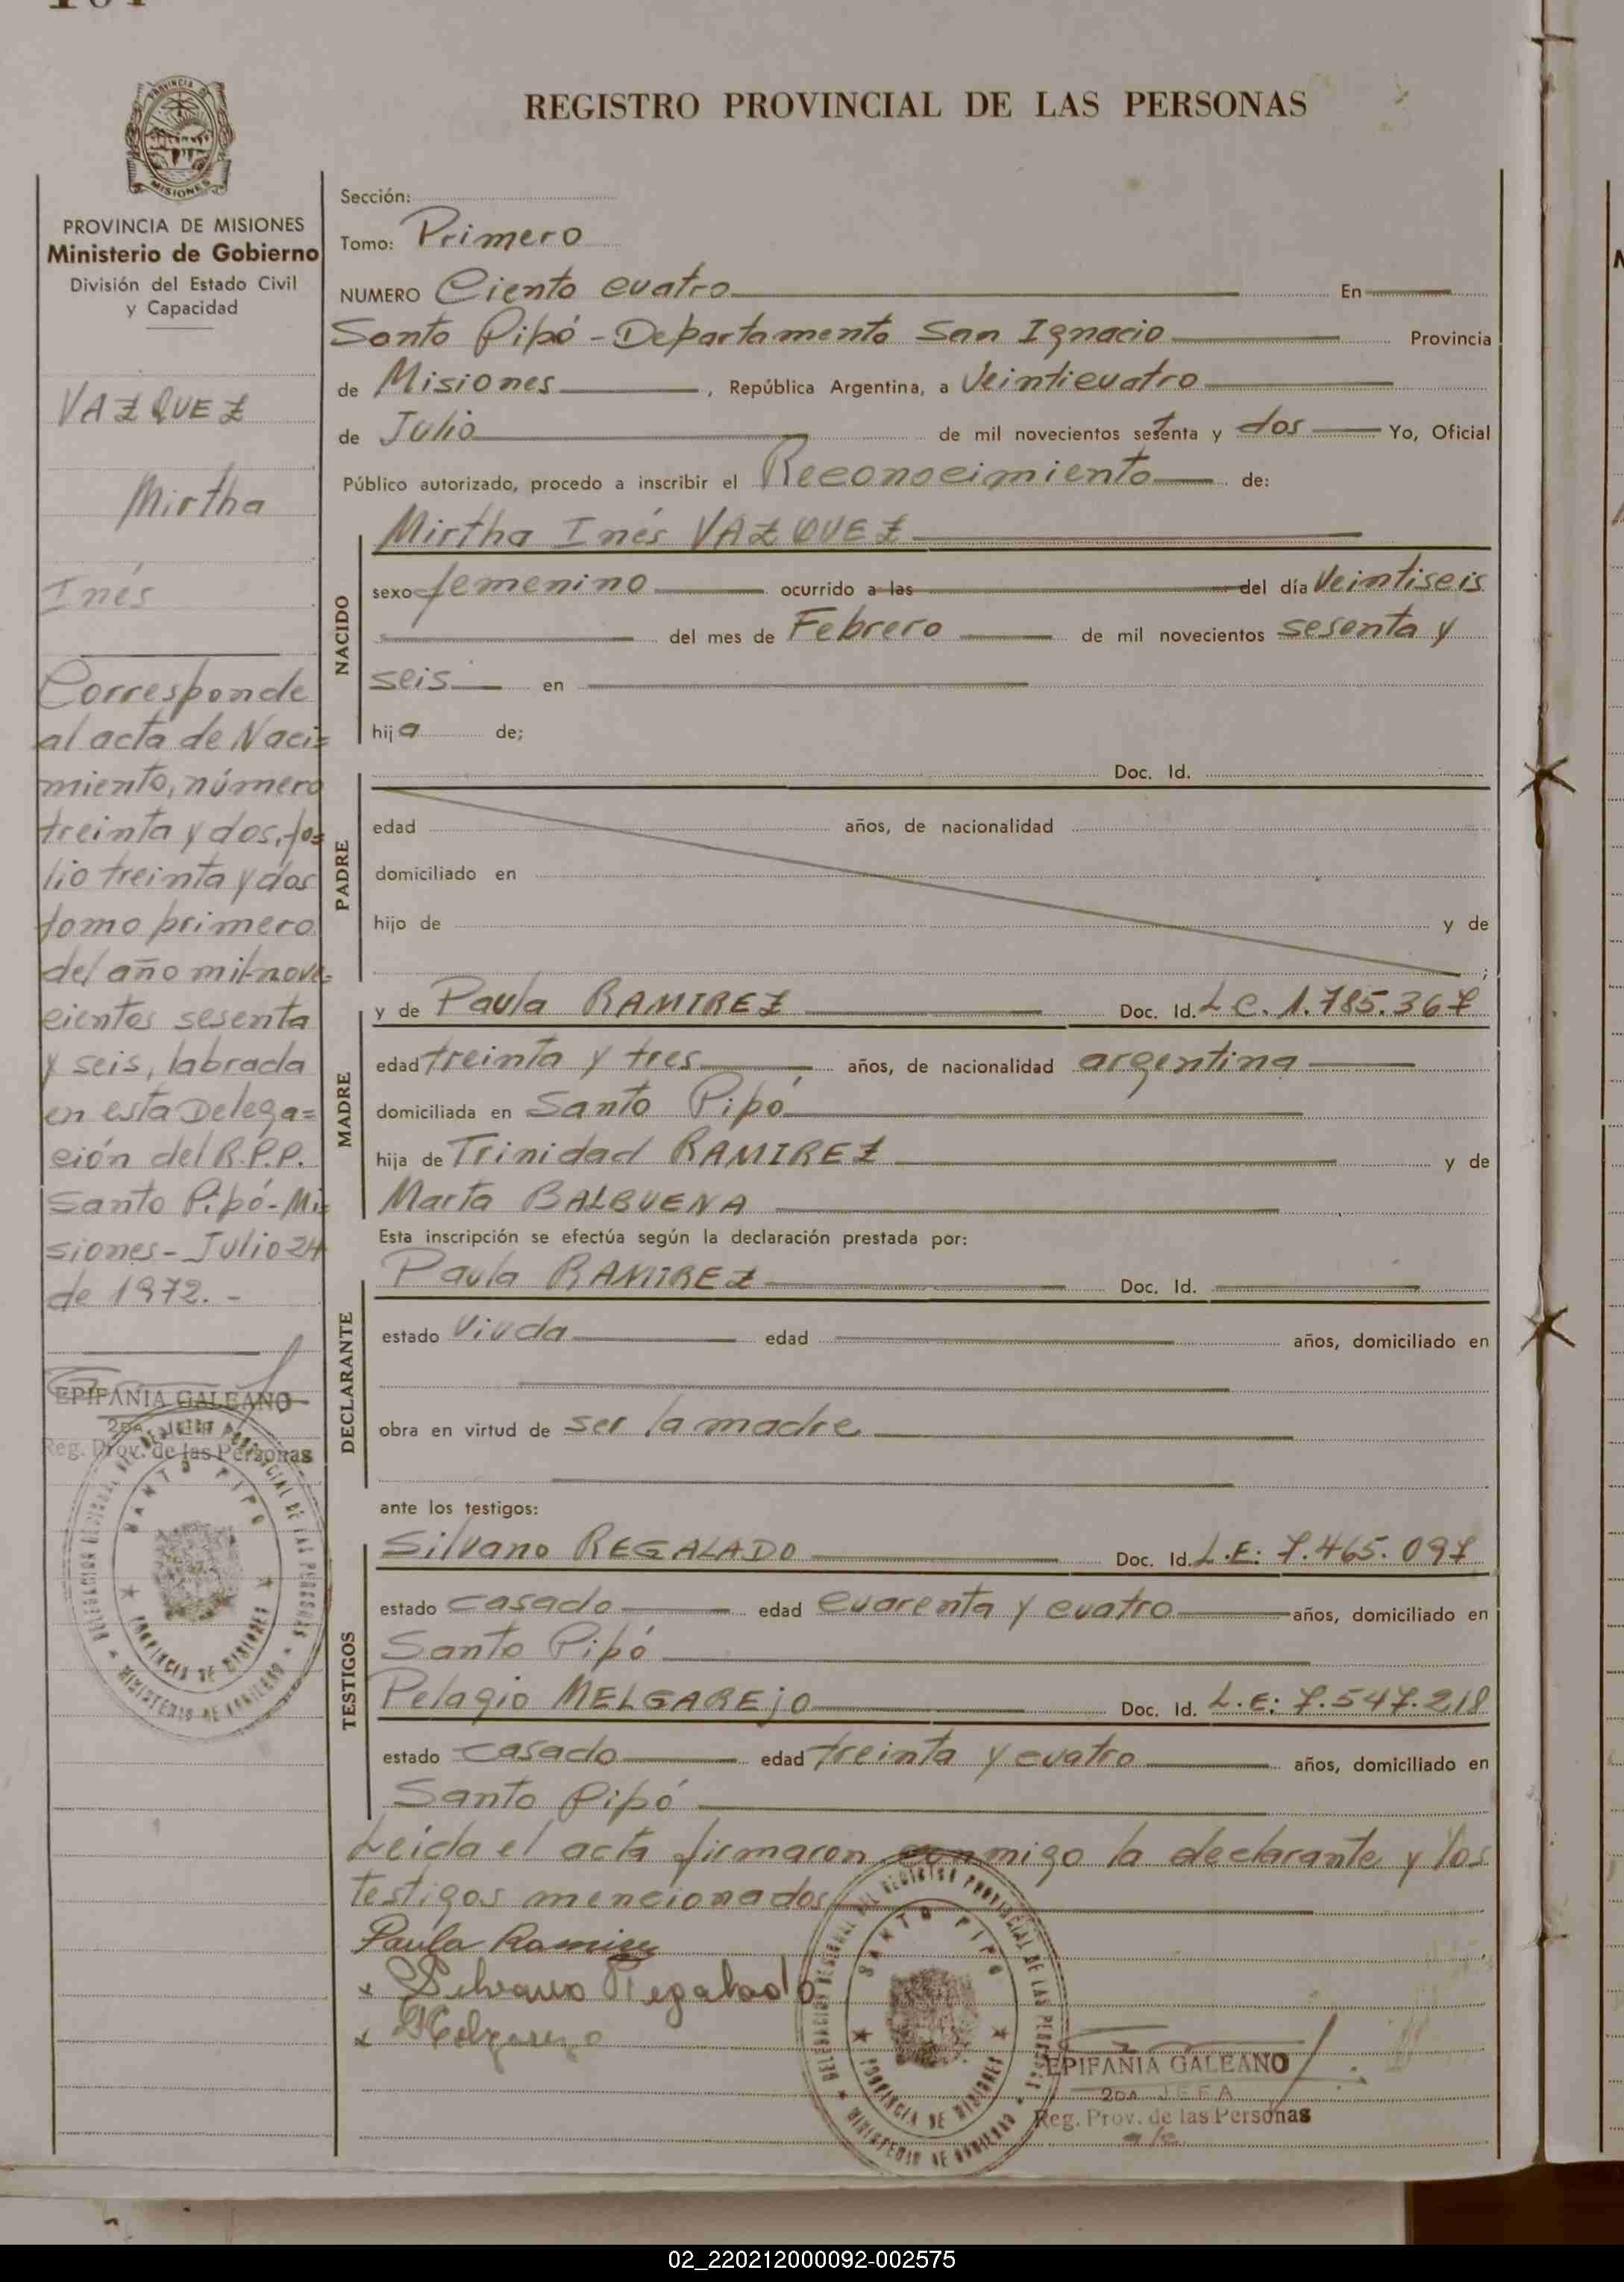 REGISTRO PROVINCIAL DE LAS PERSONAS
MISIONES
PROVINCIA DE MISIONES
Ministerio de Gobierno
División del Estado Civil
y Capacidad
VAZQUEZ
Mirtha
Inés
Corresponde
al acta de Naci=
miento, número
treinta y dos, fo=
lio treinta y dos
tomo primero
del año mil nove=
cientos sesenta
y seis, labrada
en esta Delega=
ción del R.P.P.
Santo Pipó-Mi=
siones- Julio 24
de 1972. -
EPIFANIA GALEANO
2DA
Reg. Prov. de las Personas
DELEGACION REGIONAL DEL REGISTRO PROVINCIAL DE LAS PERSONAS
SANTO PIPO
PROVINCIA DE MISIONES
MINISTERIO DE GOBIERNO
Sección:
Tomo: Primero
NUMERO Ciento cuatro En
Santo Pipó - Departamento San Ignacio Provincia
de Misiones, República Argentina, a Veinticuatro
de Julio de mil novecientos setenta y dos Yo, Oficial
Público autorizado, procedo a inscribir el Reconocimiento de:
NACIDO
Mirtha Inés VAZQUEZ
sexo femenino ocurrido a las del día Veintiseis
del mes de Febrero de mil novecientos sesenta y
seis en
hija de;
PADRE
Doc. Id.
edad años, de nacionalidad
domiciliado en
hijo de y de
;
MADRE
y de Paula RAMIREZ Doc. Id. L.C. 1.785.367
edad treinta y tres años, de nacionalidad argentina
domiciliada en Santo Pipó
hija de Trinidad RAMIREZ y de
Marta BALBUENA
Esta inscripción se efectúa según la declaración prestada por:
DECLARANTE
Paula RAMIREZ Doc. Id.
estado Viuda edad años, domiciliado en
obra en virtud de ser la madre
ante los testigos:
TESTIGOS
Silvano REGALADO Doc. Id. L.E: 7.465.097
estado casado edad cuarenta y cuatro años, domiciliado en
Santo Pipó
Pelagio MELGAREJO Doc. Id. L.E: 7.547.218
estado casado edad treinta y cuatro años, domiciliado en
Santo Pipó
Leida el acta firmaron conmigo la declarante y los
testigos mencionados
Paula Ramirez
x Silvano Regalado
x Melgarejo
DELEGACION REGIONAL DEL REGISTRO PROVINCIAL DE LAS PERSONAS
SANTO PIPO
PROVINCIA DE MISIONES
MINISTERIO DE GOBIERNO
EPIFANIA GALEANO
2DA JEFA
Reg. Prov. de las Personas
a/c
02_220212000092-002575